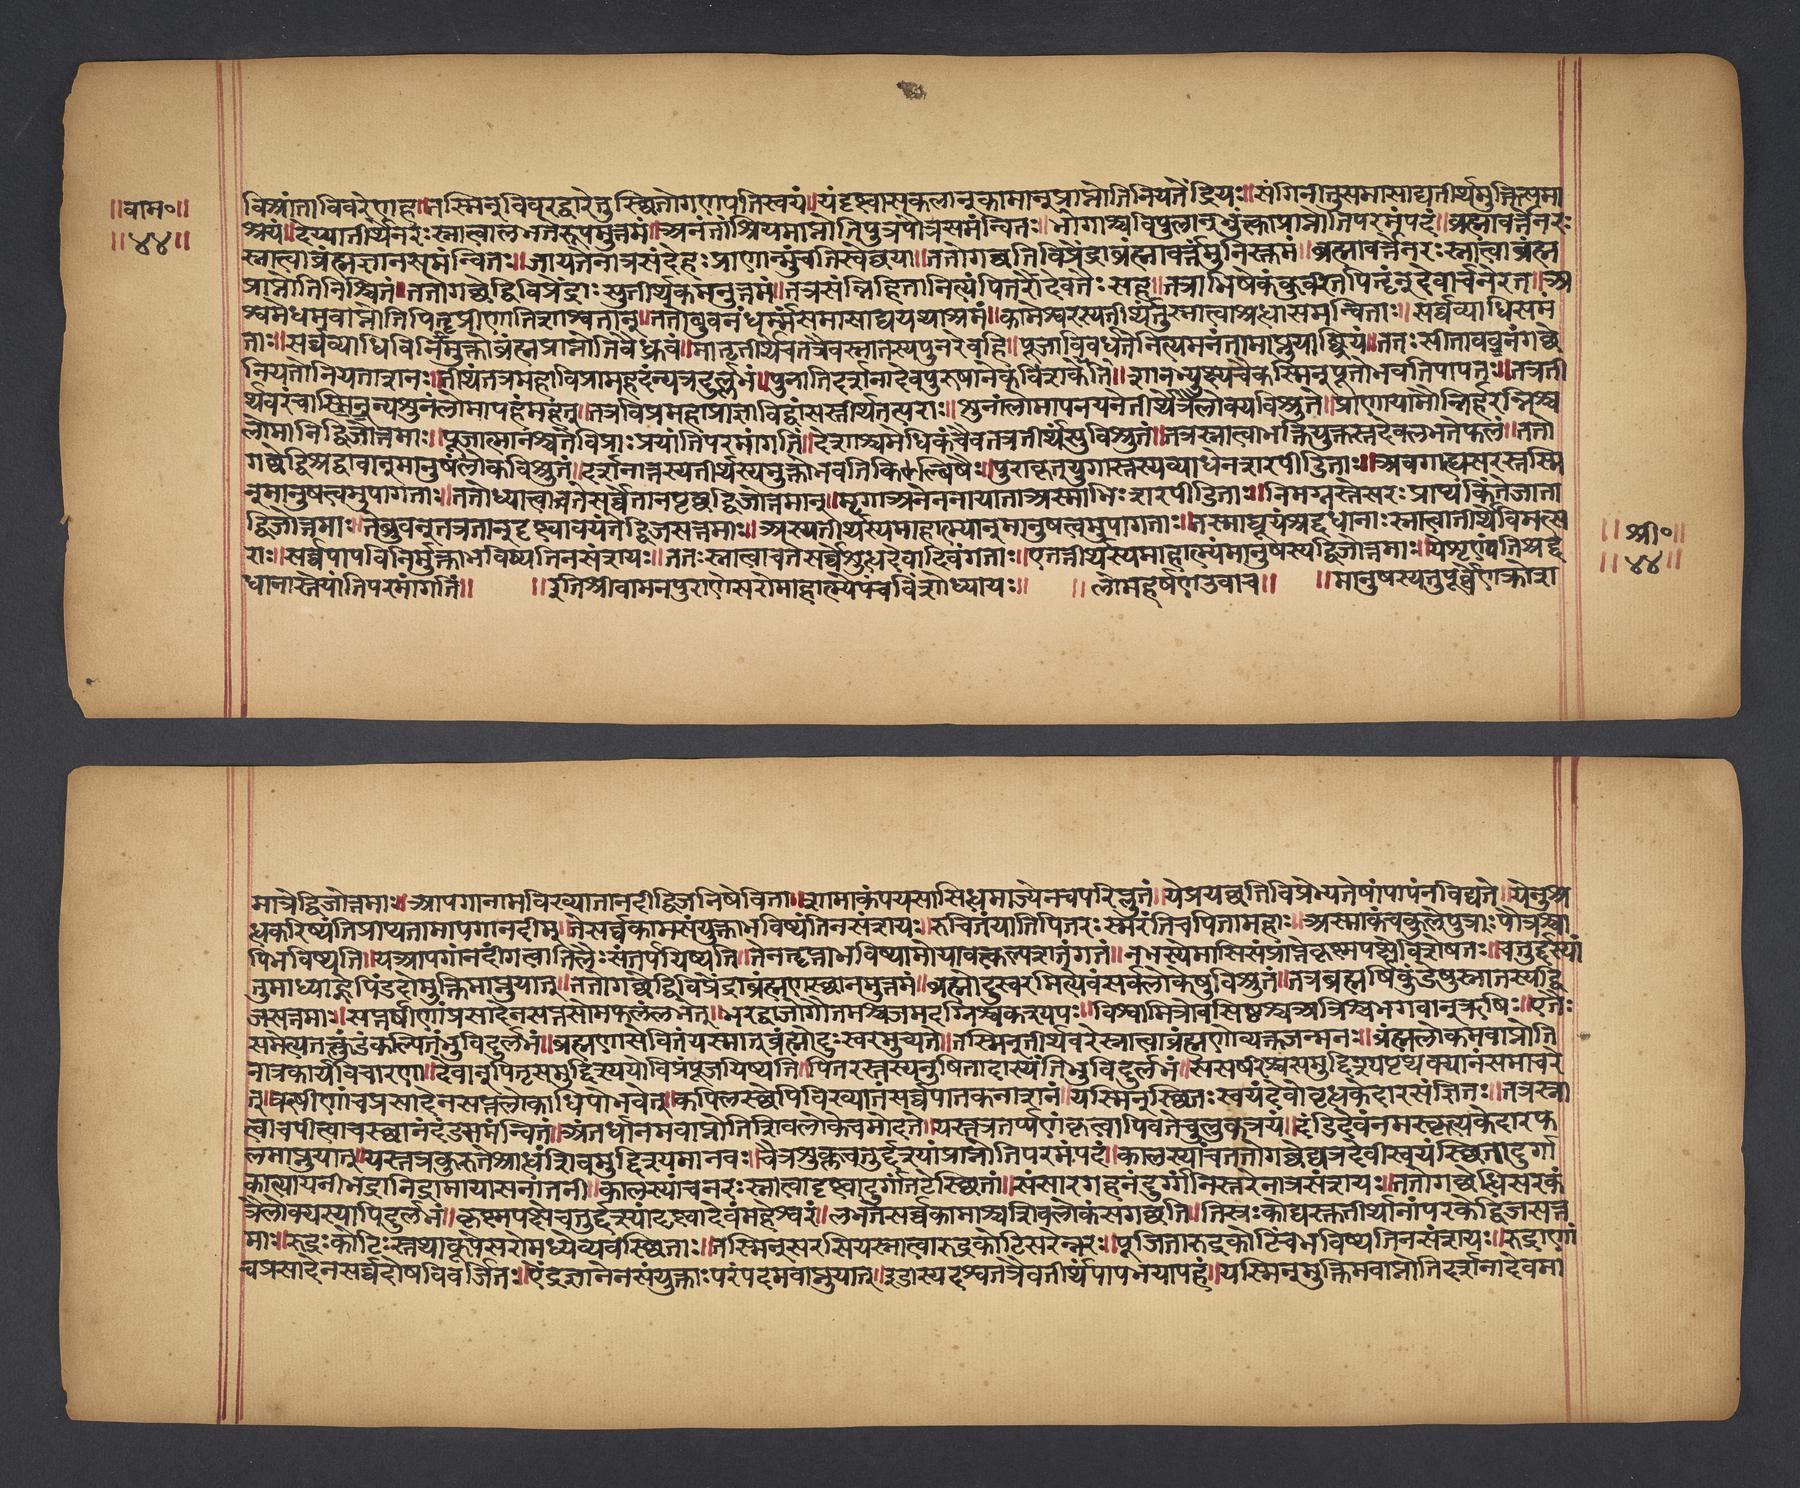 ॥वाम०॥
॥४४॥
विश्रांतो विवरेणह॥तस्मिन्नुविपुरद्वारेतुस्थितोगणपतिस्वयं॥यंदृष्ट्वासकलान्कामान्प्राप्नोतिनियतेंद्रियः॥संगिनीतुसमासाद्यतीर्थमुक्तिसमा
श्रयं॥देव्यातीर्थेनरःस्नात्वालभतेरूपमुत्तमं॥अनंतांश्रियमाप्नोतिपुत्रपौत्रसमंन्वितः॥भोगाश्चविपुलान्भुंक्त्वाप्राप्नोतिपरमंपदं॥ब्रह्मावर्त्तेनरः
स्नात्वाब्रंह्मज्ञानसमन्वितः॥जायतेनात्रसंदेहःप्राणान्मुंचतिस्वेछया॥ततोगछतिविप्रेंद्राब्रंह्मावर्त्तंमुनिस्तमं॥ब्रह्मावर्त्तेनरःस्नात्वाब्रंह्म
प्राप्नोतिनिश्चितं॥ततोगछेद्विविप्रेंद्राःसुतीर्थकमनुत्तमं॥तत्रसंन्निहितानित्यंपितरोदेवतैःसह॥तत्राभिषेकंकुर्वीतपितृदेवार्चनेरतः॥अ
श्वमेधमवाप्नोतिपितॄन्प्रीणातिशाश्वतान्॥ततोवुवनंधर्म्मसमासाद्ययथाश्रमं॥कामेश्वरस्यतीर्थेतुस्नात्वाश्रद्धासमन्विताः॥सर्व्वव्याधिसमं
ताः॥सर्व्वव्याधिविर्निर्मुक्तोब्रंह्मप्राप्नोतिवैध्रुवं॥मातृतीर्थंचतत्रैवस्नातस्यपुनरेवहि॥पूजाविवर्धतेनित्यमनंतामाप्नुयाछ्रियं॥ततःसीतावनंगछे
नियतोनियताशनः॥तीर्थंतत्रमहाविप्रामहदंन्यत्रदुर्ल्लभं॥पुनातिदर्शनादेवपुरुषानेकविंशकैति॥शानभ्युक्ष्यचैकस्मिन्पूतोभवतिपापतः॥तत्रती
र्थवरंचास्मिन्नन्यशुनंलोमापहंमहत्॥तत्रविप्रमहाप्राज्ञाविद्वांसस्तीर्थतत्पराः॥शुनांलोमापनयनेतीर्थेत्रैलोक्यविश्रुते॥प्राणायामैर्न्निर्हरंन्तिश्व
लोमानिद्विजोत्तमाः॥पूजात्मानश्चतेविप्राःप्रयांतिपरमांगतिं॥देशाश्वमेधिकंचैवतत्रतीर्थसुविश्रुतं॥तत्रस्नात्वाभक्तियुक्तस्तदेवलभतेफलं॥ततो
गछेद्विश्रद्धावान्मानुषंलोकविश्रुतं॥दर्शनात्तस्यतीर्थस्यमुक्तोभवतिकिल्बिषैः॥पुराकृतयुगास्तस्यव्याधेनशरपीडिताः॥अवगाह्यसरस्तस्मि
न्मानुषत्त्वमुपागताः॥ततोध्यात्वाव्रतेसर्व्वेतानपृछद्द्विजोत्तमान्॥मृगाश्रनेननायाताअस्माभिःशरपीडिताः॥निमग्नास्तेसरःप्राप्यंकिंतेजाता
द्विजोत्तमाः॥तेब्रुवन्तत्रतान्दृष्ट्वावयंतेद्विजसत्तमाः॥अस्यतीर्थस्यमाहात्म्यान्मानुषत्त्वमुपागताः॥तस्माद्यूयंश्रद्दधानाःस्नात्वातीर्थेविमत्स
राः॥सर्व्वपापविनिर्मुक्ताभविष्यतिनसंशयः॥ततःस्नात्वाचतेसर्व्वेशुद्धदेवादिवंगताः॥एतत्तीर्थस्यमाहात्म्यंमानुषस्यद्विजोत्तमाः॥येशृण्वंतिश्रद्द
धानास्तेयांतिपरमांगतिं॥ ॥इतिश्रीवामनपुराणेसरोमाहात्म्येपंचविंशोध्यायः॥ ॥लोमहर्षणउवाच॥ ॥मानुषस्यतुपूर्व्वेणक्रोश
॥श्री०॥
॥४४॥
मात्रेद्विजोत्तमाः॥आपगानामविख्यातानदीद्विजनिषेविता॥श्यामाकंपयसासिद्धमाज्येनचपरिप्लुतं॥येप्रयछंतिविप्रेभ्यतेषांपापंनविद्यते॥येनुश्रा
द्धंकरिष्यंतिप्राप्यतामापगांनदीम्॥तेसर्व्वकामसंयुक्ताभविष्यंतिनसंशयः॥रुचितंयातिपितरःस्मरंतिचपितामहाः॥अस्माकंचकुलेपुत्राःपौत्रश्चा
पिभविष्यति॥यआपगांनदींगत्वातिलैःसंतर्पयिष्यति॥तेनतृप्ताभविष्यामोयावत्कल्पशतंगतं॥नभस्येमासिसंप्राप्तेकृष्णपक्षेविशेषतः॥चतुर्द्दश्यां
तुमाध्याह्नेपिंडदोमुक्तिमाप्नुयात्॥ततोगछेद्विविप्रेंद्राब्रंह्मणस्थानमुत्तमं॥ब्रह्मोदुम्बरमित्येवंसर्वलोकेषुविश्रुतं॥तत्रब्रह्मर्षिकुंडेषुस्नातस्यद्वि
जसत्तमाः॥सप्तर्षीणांप्रसादेनसप्तसोमफलंलभेत्॥भरद्वाजोगौतमश्चजमदग्निश्चकश्यपः॥विश्वामित्रोवसिष्ठश्चअत्रिश्चभगवान्ऋषिः॥एतैः
समेत्यतत्कुंडंकल्पितंभुविदुर्लभं॥ब्रह्मणासेवितंयस्माद्ब्रंह्मोदुःस्वरमुच्यते॥तस्मिन्तीर्थवरेस्नात्वाब्रंह्मणोव्यक्तजन्मनः॥ब्रंह्मलोकमवाप्नोति
नात्रकार्यविचारणा॥देवान्पितृसमुद्दिश्ययोविप्रंपूजयिष्यति॥पितरस्तस्यतुषितादास्यंतिभुविदुर्लभं॥सप्तर्षींश्चसमुद्दिश्यपृथक्स्यानंसमाचरे
त्॥ऋषीणांचप्रसादेनसप्तलोकाधिपोभवेत्॥कपिलस्थेपिविख्यातंसर्व्वपातकनाशनं॥यस्मिन्स्थितःस्वयंदेवोवृद्धकेदारसंज्ञितः॥तत्रस्ना
त्वाचपीत्वाचस्थानंदंडसमन्वितं॥अंतर्धानमवाप्नोतिशिवलोकेचमोदते॥यस्तत्रतर्प्पणंकृत्वापिवतेचुलुकत्रयं॥दंडिदेवंनमस्कृत्यकेदारफ
लमाप्नुयात्॥यस्तत्रकुरुतेश्राद्धंशिवमुद्दिश्यमानवः॥चैत्रशुक्लचतुर्द्दश्यांप्राप्नोतिपरमंपदं॥कालस्यांचततोगछेद्यत्रदेवीस्वयंस्थितादुर्गा
कात्यायनीभद्रानिद्रामायासनातनी॥कालस्यांचनरःस्नात्वादृष्ट्वादुर्गांतटेस्थितां॥संसारगहनंदुर्ग्गंनिस्तरेन्नात्रसंशयः॥ततोगछेद्धिसरकं
त्रैलोक्यस्यापिदुर्लभं॥कृष्णपक्षेचतुर्द्दश्यांदृष्ट्वादेवंमहेश्वरं॥लभतेसर्व्वकामाश्चशिवलोकंसगछति॥तिस्रःकोट्यस्तुतीर्थानांसरकेद्विजसत्त
माः॥रुद्रःकोटिःस्तथाकूपेसरोमध्येव्यवस्थिताः॥तस्मिन्सरसियस्नात्वारुद्रकोटिंस्मरेन्नरः॥पूजितारुद्रकोटिंचभविष्यतिनसंशयः॥रुद्राणां
चप्रसादेनसर्व्वदोषविवर्जितः॥ऐंद्रज्ञानेनसंयुक्ताःपरंपदमवाप्नुयात्॥इडास्पदश्चतत्रैवतीर्थंपापभयापहं॥यस्मिन्मुक्तिमवाप्नोतिदर्शनादेवमा